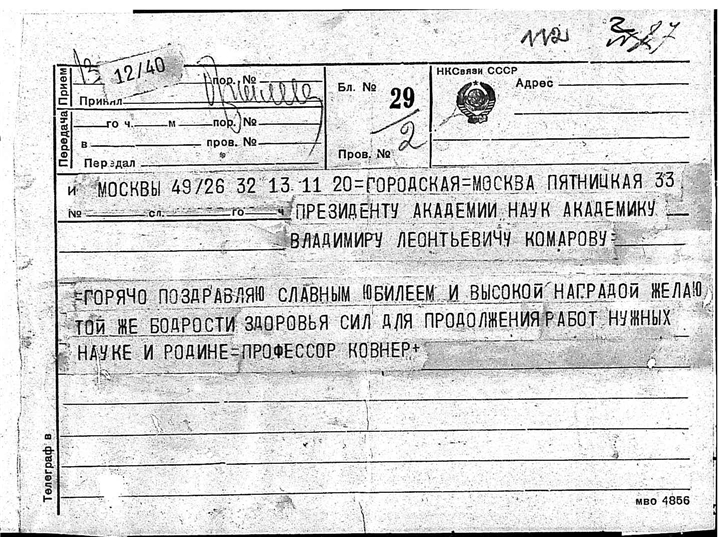 112
13 12/40
Прием
пор. №
Принял
Бл. № 29
НКСвязи СССР
Адрес
Передача
го ч. м пор. №
2
в пров. №
Передал
Пров. №
и МОСКВЫ 49/26 32 13 11 20=ГОРОДСКАЯ=МОСКВА ПЯТНИЦКАЯ 33
№ сл. го ч ПРЕЗИДЕНТУ АКАДЕМИИ НАУК АКАДЕМИКУ
ВЛАДИМИРУ ЛЕОНТЬЕВИЧУ КОМАРОВУ=
=ГОРЯЧО ПОЗДРАВЛЯЮ СЛАВНЫМ ЮБИЛЕЕМ И ВЫСОКОЙ НАГРАДОЙ ЖЕЛАЮ
ТОЙ ЖЕ БОДРОСТИ ЗДОРОВЬЯ СИЛ ДЛЯ ПРОДОЛЖЕНИЯ РАБОТ НУЖНЫХ
НАУКЕ И РОДИНЕ=ПРОФЕССОР КОВНЕР+
Телеграф в
МВО 4856